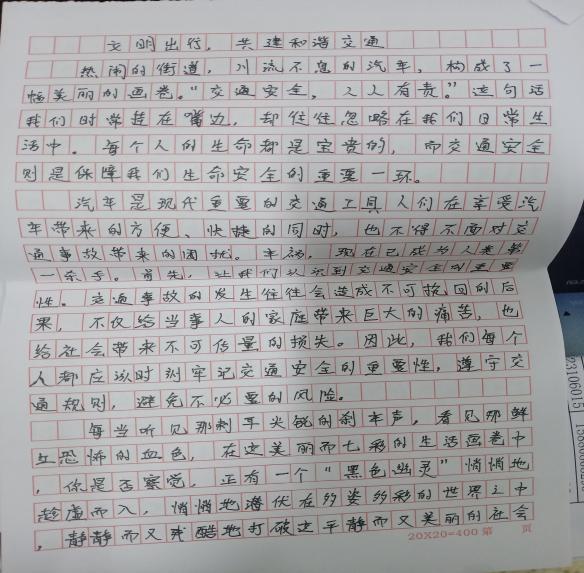 文明出行，共建和谐交通
热闹的街道，川流不息的汽车，构成了一
幅美丽的画卷。“交通安全，人人有责。”这句话
我们时常挂在嘴边，却往往忽略在我们日常生
活中。每个人的生命都是宝贵的，而交通安全
则是保障我们生命安全的重要一环。
汽车是现代重要的交通工具，人们在享受汽
车带来的方便、快捷的同时，也不得不面对交
通事故带来的困扰。车祸，现在已成为人类第
一杀手。首先，让我们认识到交通安全的重要
性。交通事故的发生往往会造成不可挽回的后
果，不仅给当事人的家庭带来巨大的痛苦，也
给社会带来不可估量的损失。因此，我们每个
人都应该时刻牢记交通安全的重要性，遵守交
通规则，避免不必要的风险。
每当听见那刺耳尖锐的刹车声，看见那鲜
红恐怖的血色，在这美丽而七彩的生活画卷中
，你是否察觉，正有一个“黑色幽灵”悄悄地
趁虚而入，悄悄地潜伏在多姿多彩的世界之中
，静静而又残酷地打破这平静而又美丽的社会
20X20=400 第 页
23106015